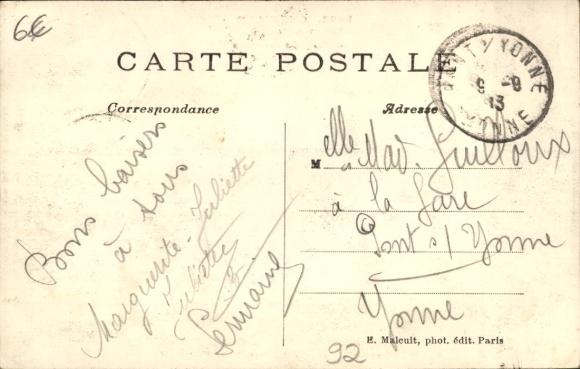 6€
CARTE POSTALE
PONT S/ YONNE
9 -9
13
YONNE
Correspondance
Adresse
Bons baisers
à tous
Marguerite - Juliette
Germaine
Melle Mad. Guilloux
à la Gare
Pont s/ Yonne
Yonne
E. Malcuit, phot. édit. Paris
92